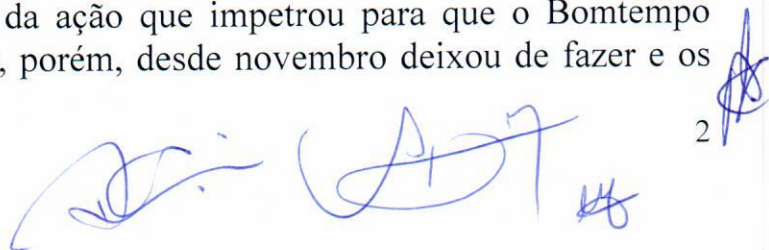 da ação que impetrou para que o Bomtempo
, porém, desde novembro deixou de fazer e os
2